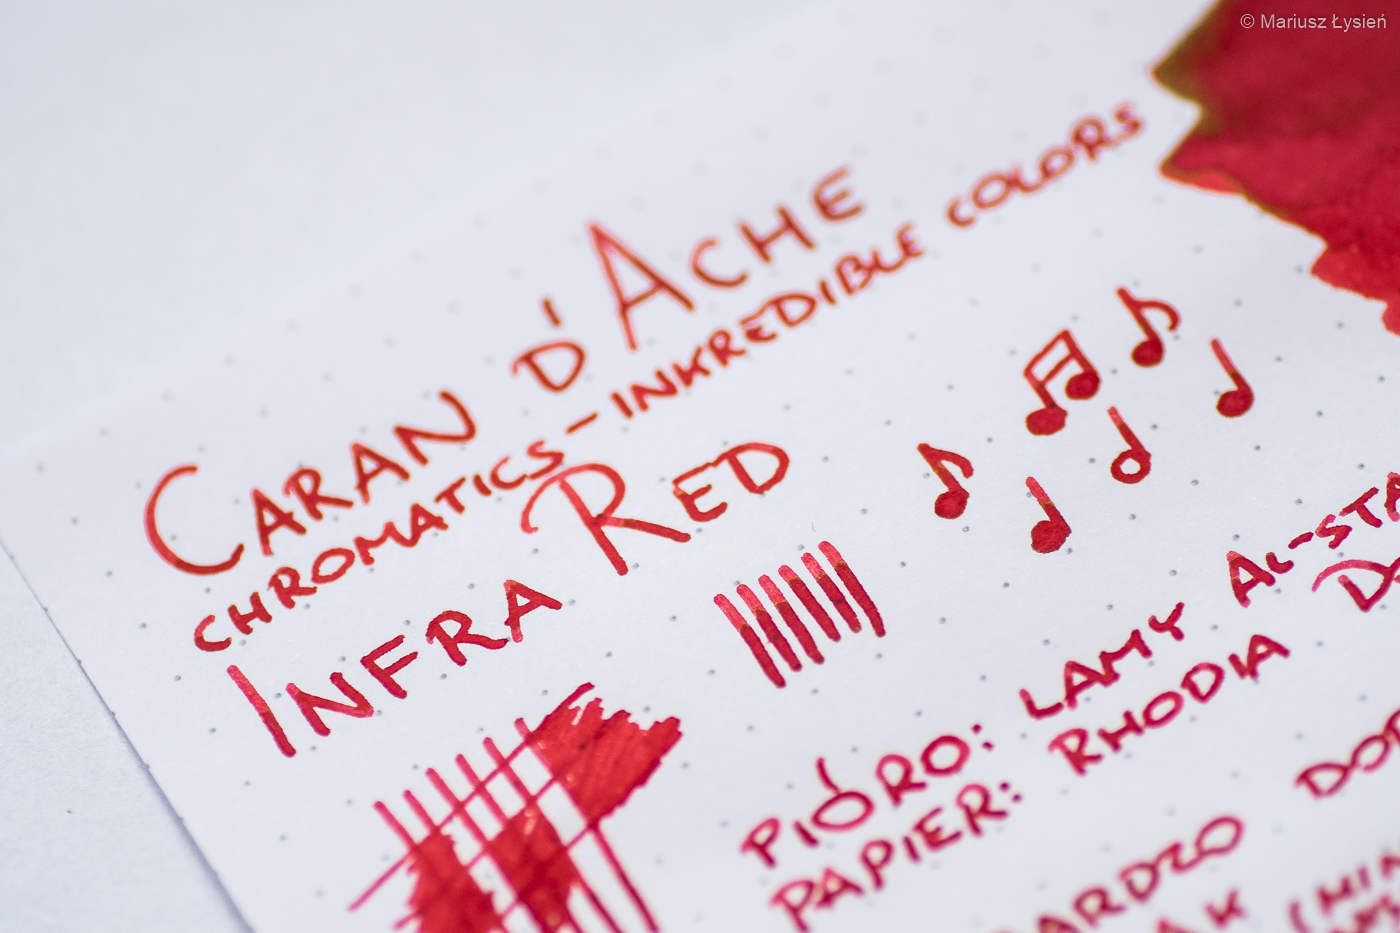 © Mariusz Łysień
CARAN D'ACHE
CHROMATICS - INKREDIBLE COLORS
INFRA RED
PIÓRO: LAMY AL-STA
PAPIER: RHODIA